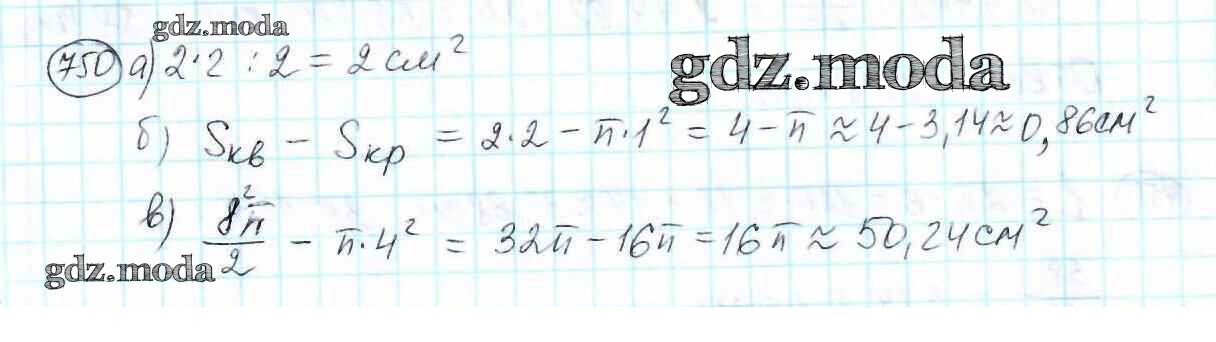 gdz.moda
750 а) 2·2 : 2 = 2 см²
gdz.moda
б) Sкв − Sкр = 2·2 − π·1² = 4 − π ≈ 4 − 3,14 ≈ 0,86 см²
в) 8²π/2 − π·4² = 32π − 16π = 16π ≈ 50,24 см²
gdz.moda